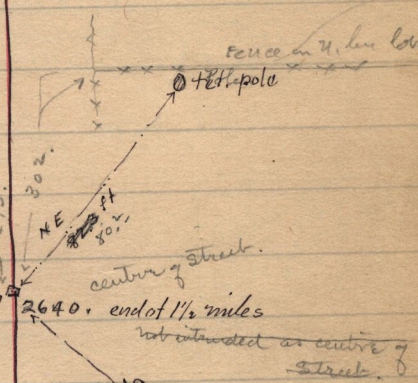 Fence on N. line lot
telephpole
302.
NE
ft
80.2.
centre of Street.
2640. end of 1½ miles
not intended as centre of
Street.